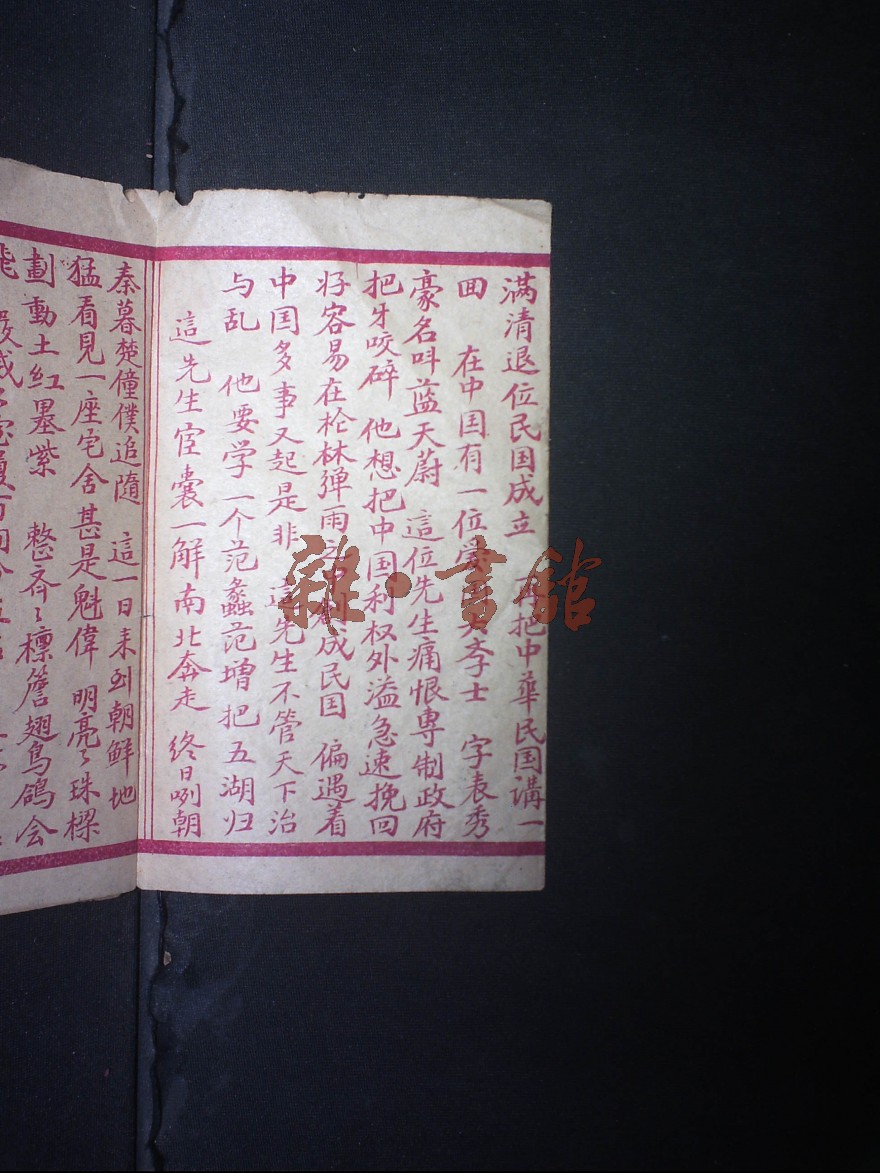 满清退位民国成立 再把中華民国講一
回 在中国有一位爱 夫李士 字表秀
豪名叫蓝天蔚 這位先生痛恨專制政府
把牙咬碎 他想把中国利权外溢急速挽回
好容易在枪林弹雨之中 成民国 偏遇着
中国多事又起是非 這先生不管天下治
与乱 他要学一个范蠡范增把五湖归
這先生宦囊一解南北奔走 终日咧朝
秦暮楚僮僕追隨 這一日来到朝鲜地
猛看見一座宅舍甚是魁偉 明亮〻珠樑
劃動土红墨紫 整齐〻檩簷翅鸟鴿会
雜·書館